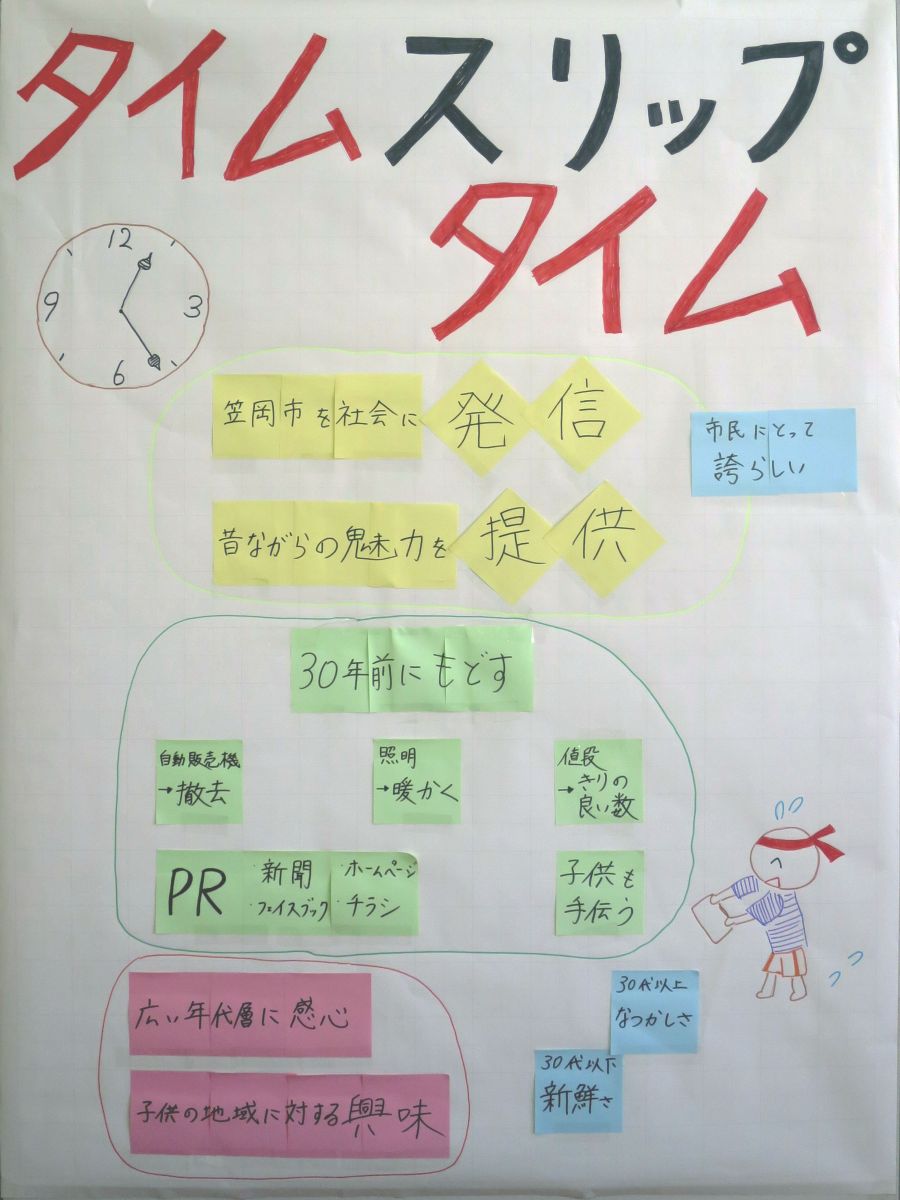 タイムスリップ
タイム
12
9
3
6
笠岡市を社会に発信
市民にとって
誇らしい
昔ながらの魅力を提供
30年前にもどす
自動販売機
→撤去
照明
→暖かく
値段
→きりの
良い数
PR
・新聞
・フェイスブック
・ホームページ
・チラシ
子供も
手伝う
広い年代層に感心
子供の地域に対する興味
30代以上
なつかしさ
30代以下
新鮮さ